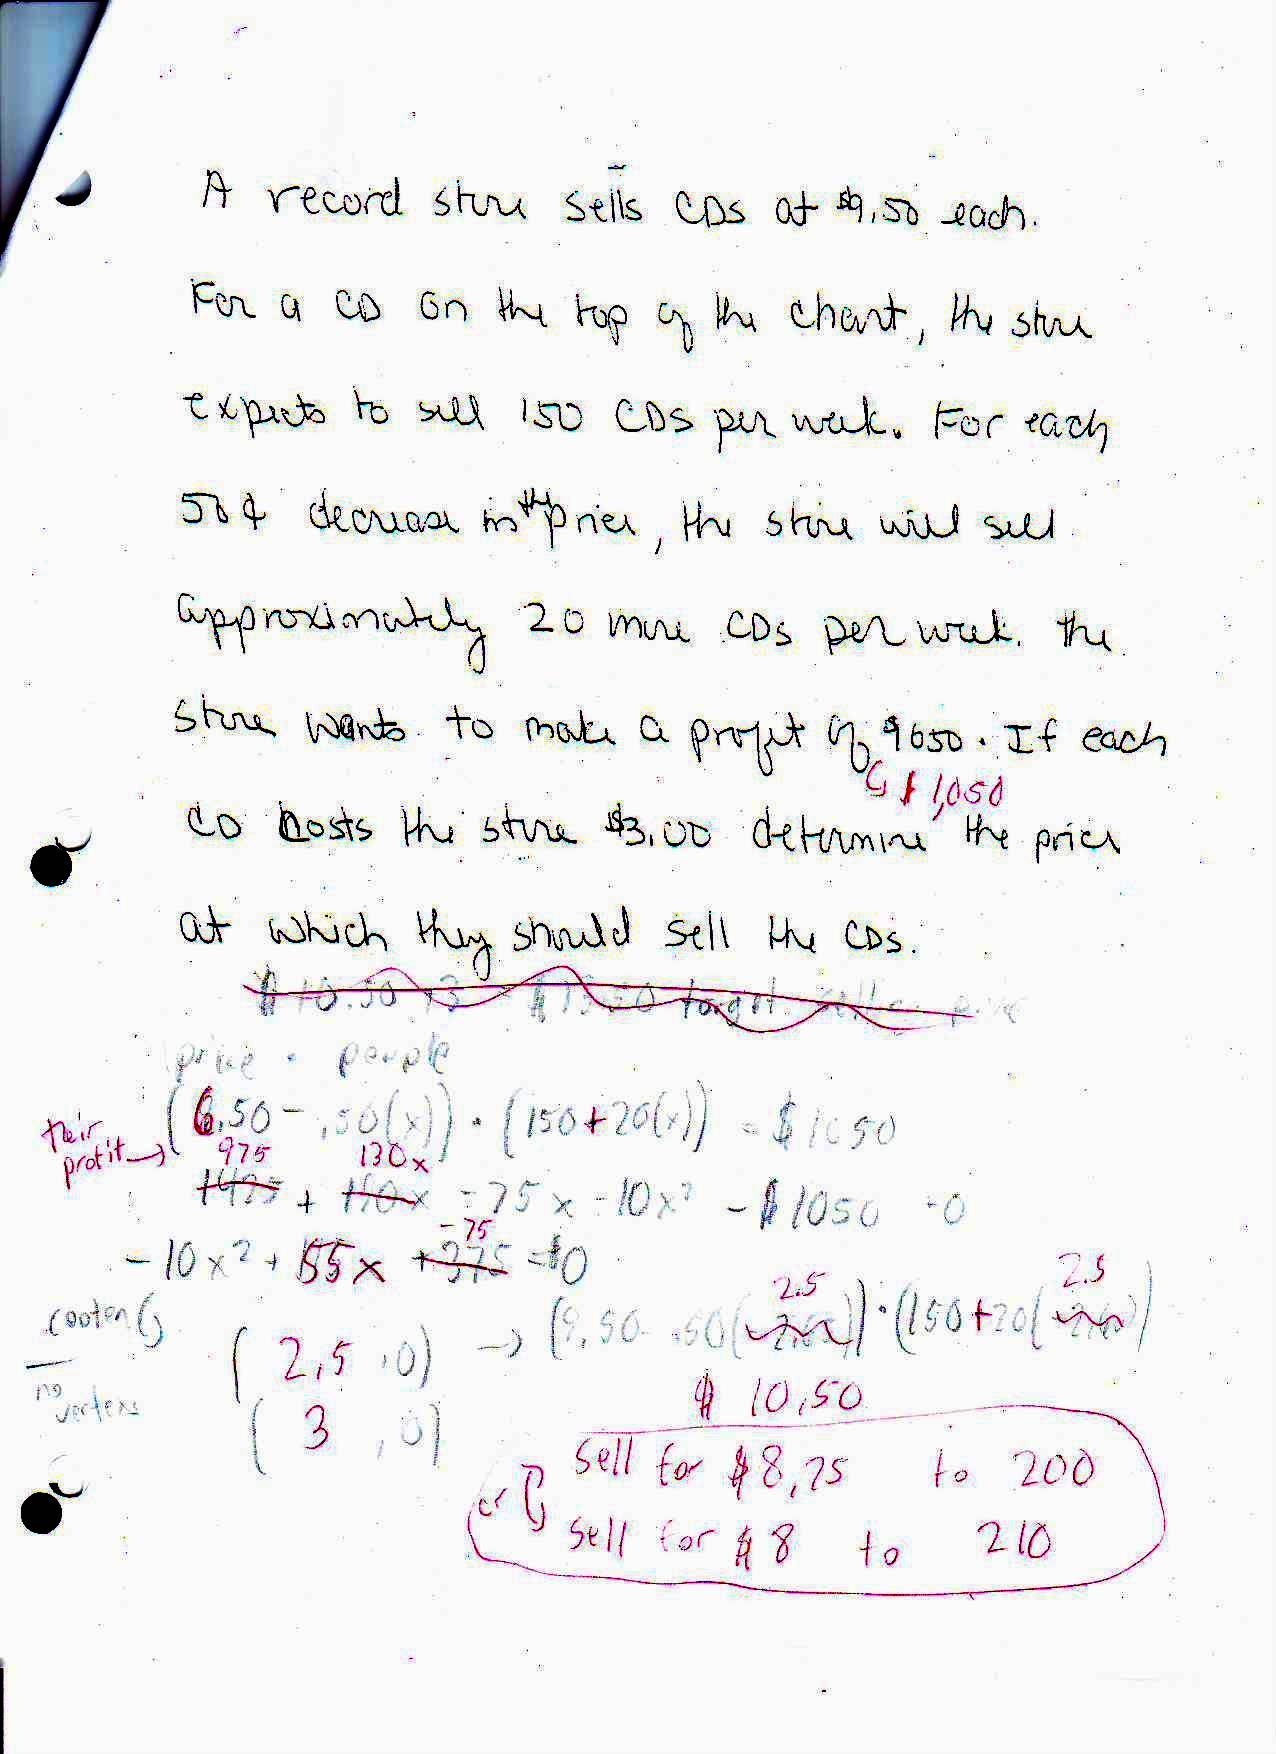 A record store sells CDs at $9.50 each.
For a CD on the top of the chart, the store
expects to sell 150 CDs per week. For each
50¢ decrease in the price, the store will sell
approximately 20 more CDs per week. The
store wants to make a profit of $650. If each
↳ $1,050
CD costs the store $3.00 determine the price
at which they should sell the CDs.
price · people
their profit → (6.50 - .50(x)) · (150 + 20(x)) = $1050
975 130x
1425 + 190x - 75x - 10x² - $1050 = 0
-75
-10x² + 55x + 375 = 0
2.5 2.5
(2.5, 0) → (9.50 - .50( )) · (150 + 20( ))
no vertex
$10.50
(3, 0)
sell for $8.25 to 200
or
sell for $8 to 210